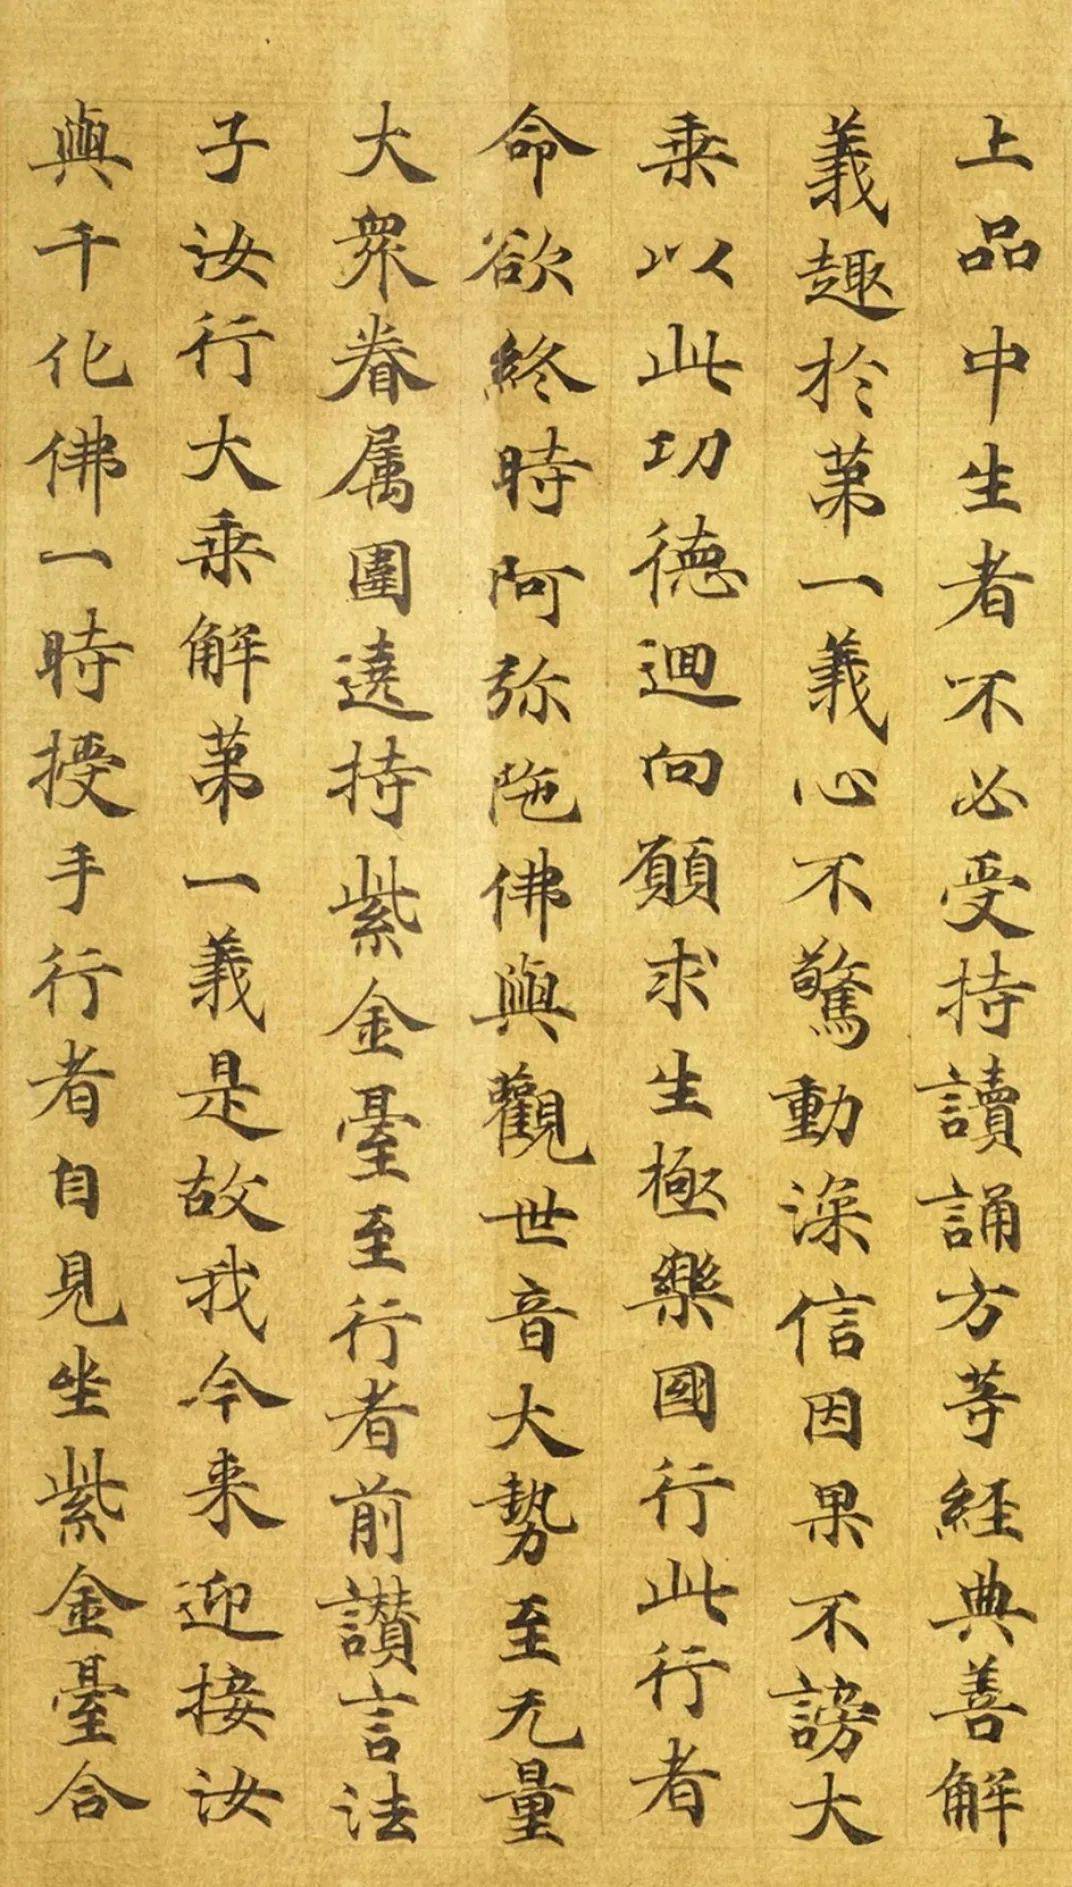 上品中生者不必受持讀誦方等経典善解
義趣於苐一義心不驚動深信因果不謗大
乗以此功徳迴向願求生極樂國行此行者
命欲終時阿弥陁佛與觀世音大勢至无量
大衆眷属圍遶持紫金臺至行者前讃言法
子汝行大乗解苐一義是故我今来迎接汝
與千化佛一時授手行者自見坐紫金臺合